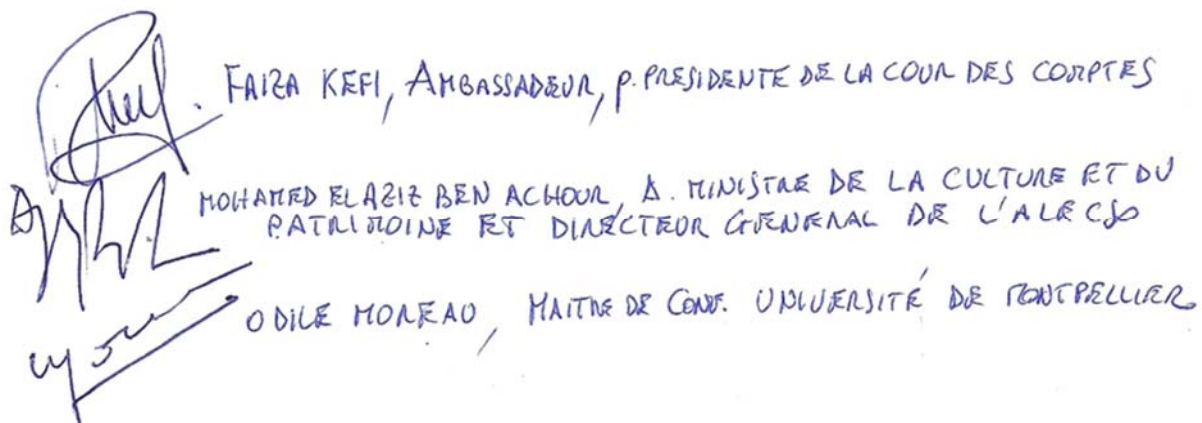 FAIZA KEFI, AMBASSADEUR, P. PRESIDENTE DE LA COUR DES COMPTES
MOHAMED EL AZIZ BEN ACHOUR, A. MINISTRE DE LA CULTURE ET DU
PATRIMOINE ET DIRECTEUR GENERAL DE L'ALECSO
ODILE MOREAU, MAITRE DE CONF. UNIVERSITÉ DE MONTPELLIER